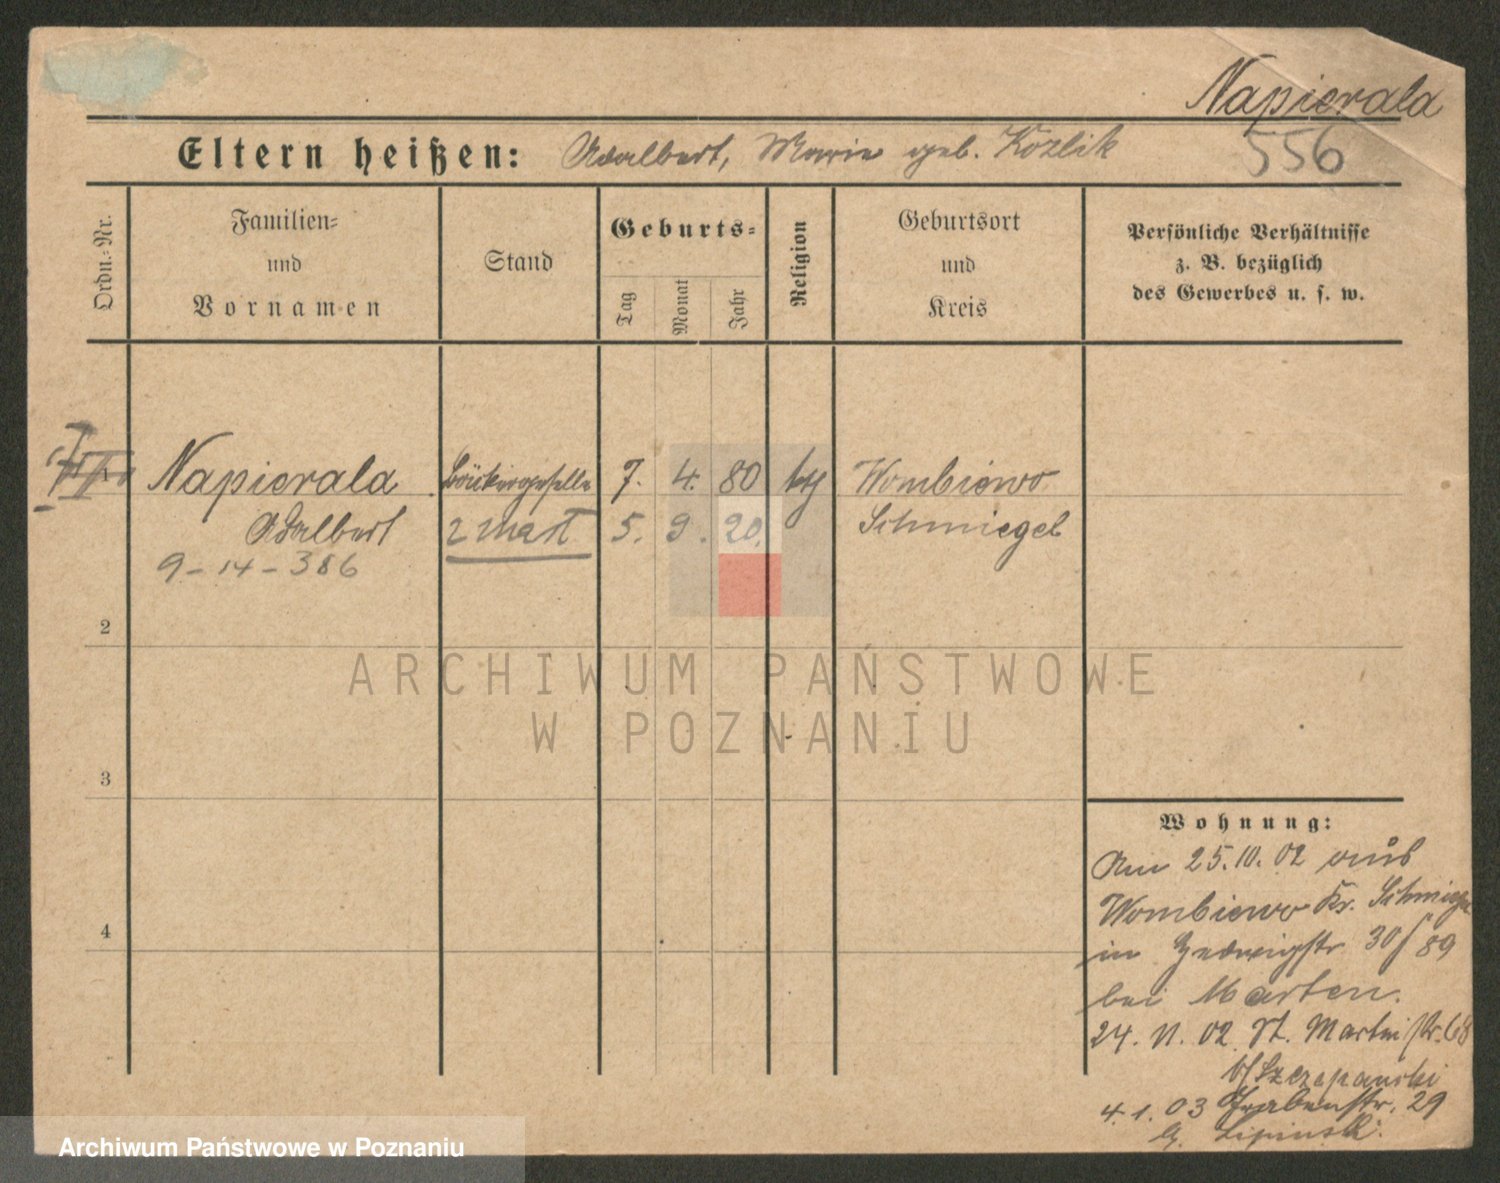 Napierala
556
Eltern heißen: Adalbert, Marie geb. Kozlik
Ordn.-Nr.
Familien-
und
Vornamen
Stand
Geburts-
Tag
Monat
Jahr
Religion
Geburtsort
und
Kreis
Persönliche Verhältnisse
z. B. bezüglich
des Gewerbes u. s. w.
Napierala Bäckergeselle 7. 4. 80 kth Wombiewo
Adalbert 5. 9. 20. Schmiegel
9-14-386
2
3
4
ARCHIWUM PAŃSTWOWE
W POZNANIU
Wohnung:
Am 25.10.02 aus
Wombiewo Kr. Schmiegel
in Hedwigstr. 30/89
bei Marten.
24. 11. 02 St. Martinstr. 68
b/ Szczepanski
4. 1. 03 Grabenstr. 29
Lipinski.
Archiwum Państwowe w Poznaniu